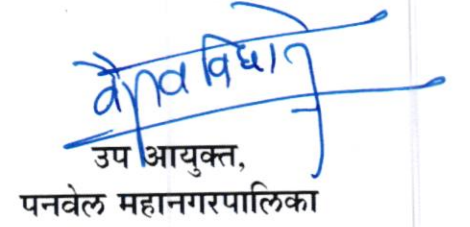 वैभव विधाते
उप आयुक्त,
पनवेल महानगरपालिका